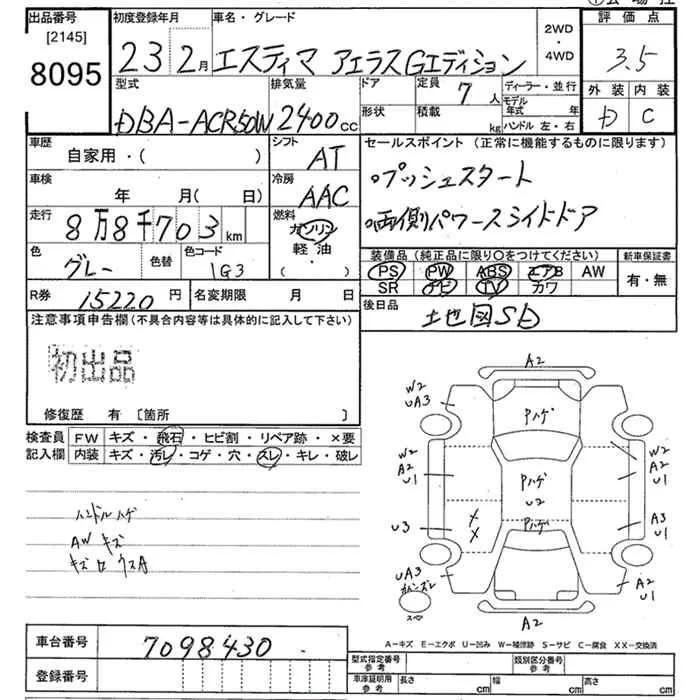 出品番号
[2145]
8095
初度登録年月
23 2月
車名・グレード
エスティマ アエラスGエディション
2WD
・
4WD
評価点
3.5
型式
DBA-ACR50W
排気量
2400cc
ドア
形状
定員
7人
積載
kg
ディーラー・並行
モデル年式 年
ハンドル 左・右
外装 内装
D C
車歴
自家用・( )
シフト
AT
車検
年 月( 日)
冷房
AAC
走行
8万8千703km
燃料
ガソリン
・
軽油
・
( )
色
グレー
色替
色コード
1G3
R券
15220円
名変期限 月 日
セールスポイント(正常に機能するものに限ります)
○プッシュスタート
○両側パワースライドドア
装備品(純正品に限り○をつけてください)
PS PW ABS エアB AW
SR ナビ TV カワ
新車保証書
有・無
後日品
地図SD
注意事項申告欄(不具合内容等は具体的に記入して下さい)
初出品
修復歴 有 [箇所 ]
検査員
記入欄
FW キズ・飛石・ヒビ割・リペア跡・×要
内装 キズ・汚レ・コゲ・穴・スレ・キレ・破レ
ハンドルハゲ
AW キズ
A2
W2
UA3
Pハゲ
W2
W2
A2
U1
Pハゲ
U2
W2
A2
U1
U3
××
Pハゲ
A3
U1
UA3
A2
U1
スペア
A2
A-キズ E-エクボ U-凹み W-補修跡 S-サビ C-腐食 XX-交換済
車台番号
7098430
登録番号
型式指定番号
参考
類別区分番号
参考
車庫証明用
参考
長さ cm 幅 cm 高さ cm